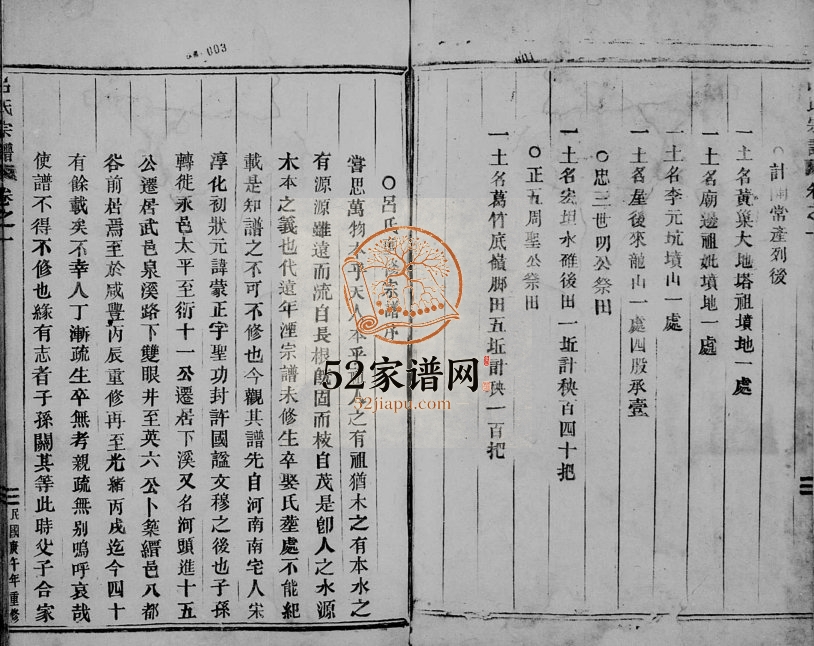 計開常產列後
一土名黃葉大地塔祖墳地一處
一土名廟邊祖妣墳地一處
一土名李元坑墳山一處
一土名屋後來龍山一處四股承壹
○忠三世明公祭田
一土名宏坦水碓後田一坵計秧百四十把
○正五周聖公祭田
一土名葛竹底嶺脚田五坵計秧一百把
○呂氏重修宗譜序
嘗思萬物本乎天人本乎祖人之有祖猶木之有本水之
有源源雖遠而流自長根既固而枝自茂是卽人之水源
木本之義也代遠年湮宗譜未修生卒娶氏塟處不能紀
載是知譜之不可不修也今觀其譜先自河南南宅人宋
淳化初狀元諱蒙正字聖功封許國謚文穆之後也子孫
轉徙永邑太平至衍十一公遷居下溪又名河頭進十五
公遷居武邑泉溪路下雙眼井至英六公卜築縉邑八都
谷前居焉至於咸豐丙辰重修再至光緒丙戌迄今四十
有餘載矣不幸人丁漸疏生卒無考親疏無别嗚呼哀哉
使譜不得不修也緣有志者子孫關其等此時父子合家
呂氏宗譜
卷之一
民國庚午年重修
003
001
52家谱网
52jiapu.com